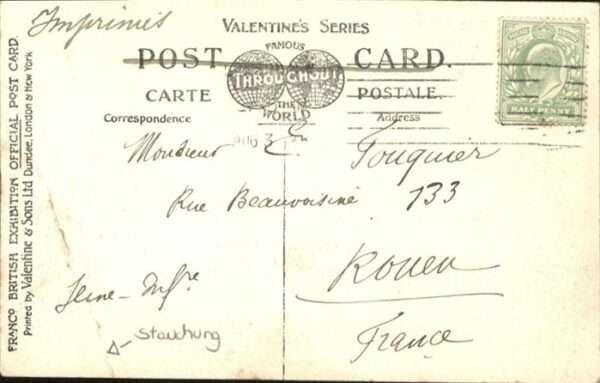 Imprimés
VALENTINE'S SERIES
POST CARD.
FAMOUS
THROUGHOUT
THE
WORLD
CARTE POSTALE.
Correspondence
Address
AUG 3
Monsieur E Fouquier
Rue Beauvoisine 133
Rouen
Seine-Infre
France
Stauchung
HALFPENNY
FRANCO BRITISH EXHIBITION OFFICIAL POST CARD.
Printed by Valentine & Sons Ltd Dundee, London & New York